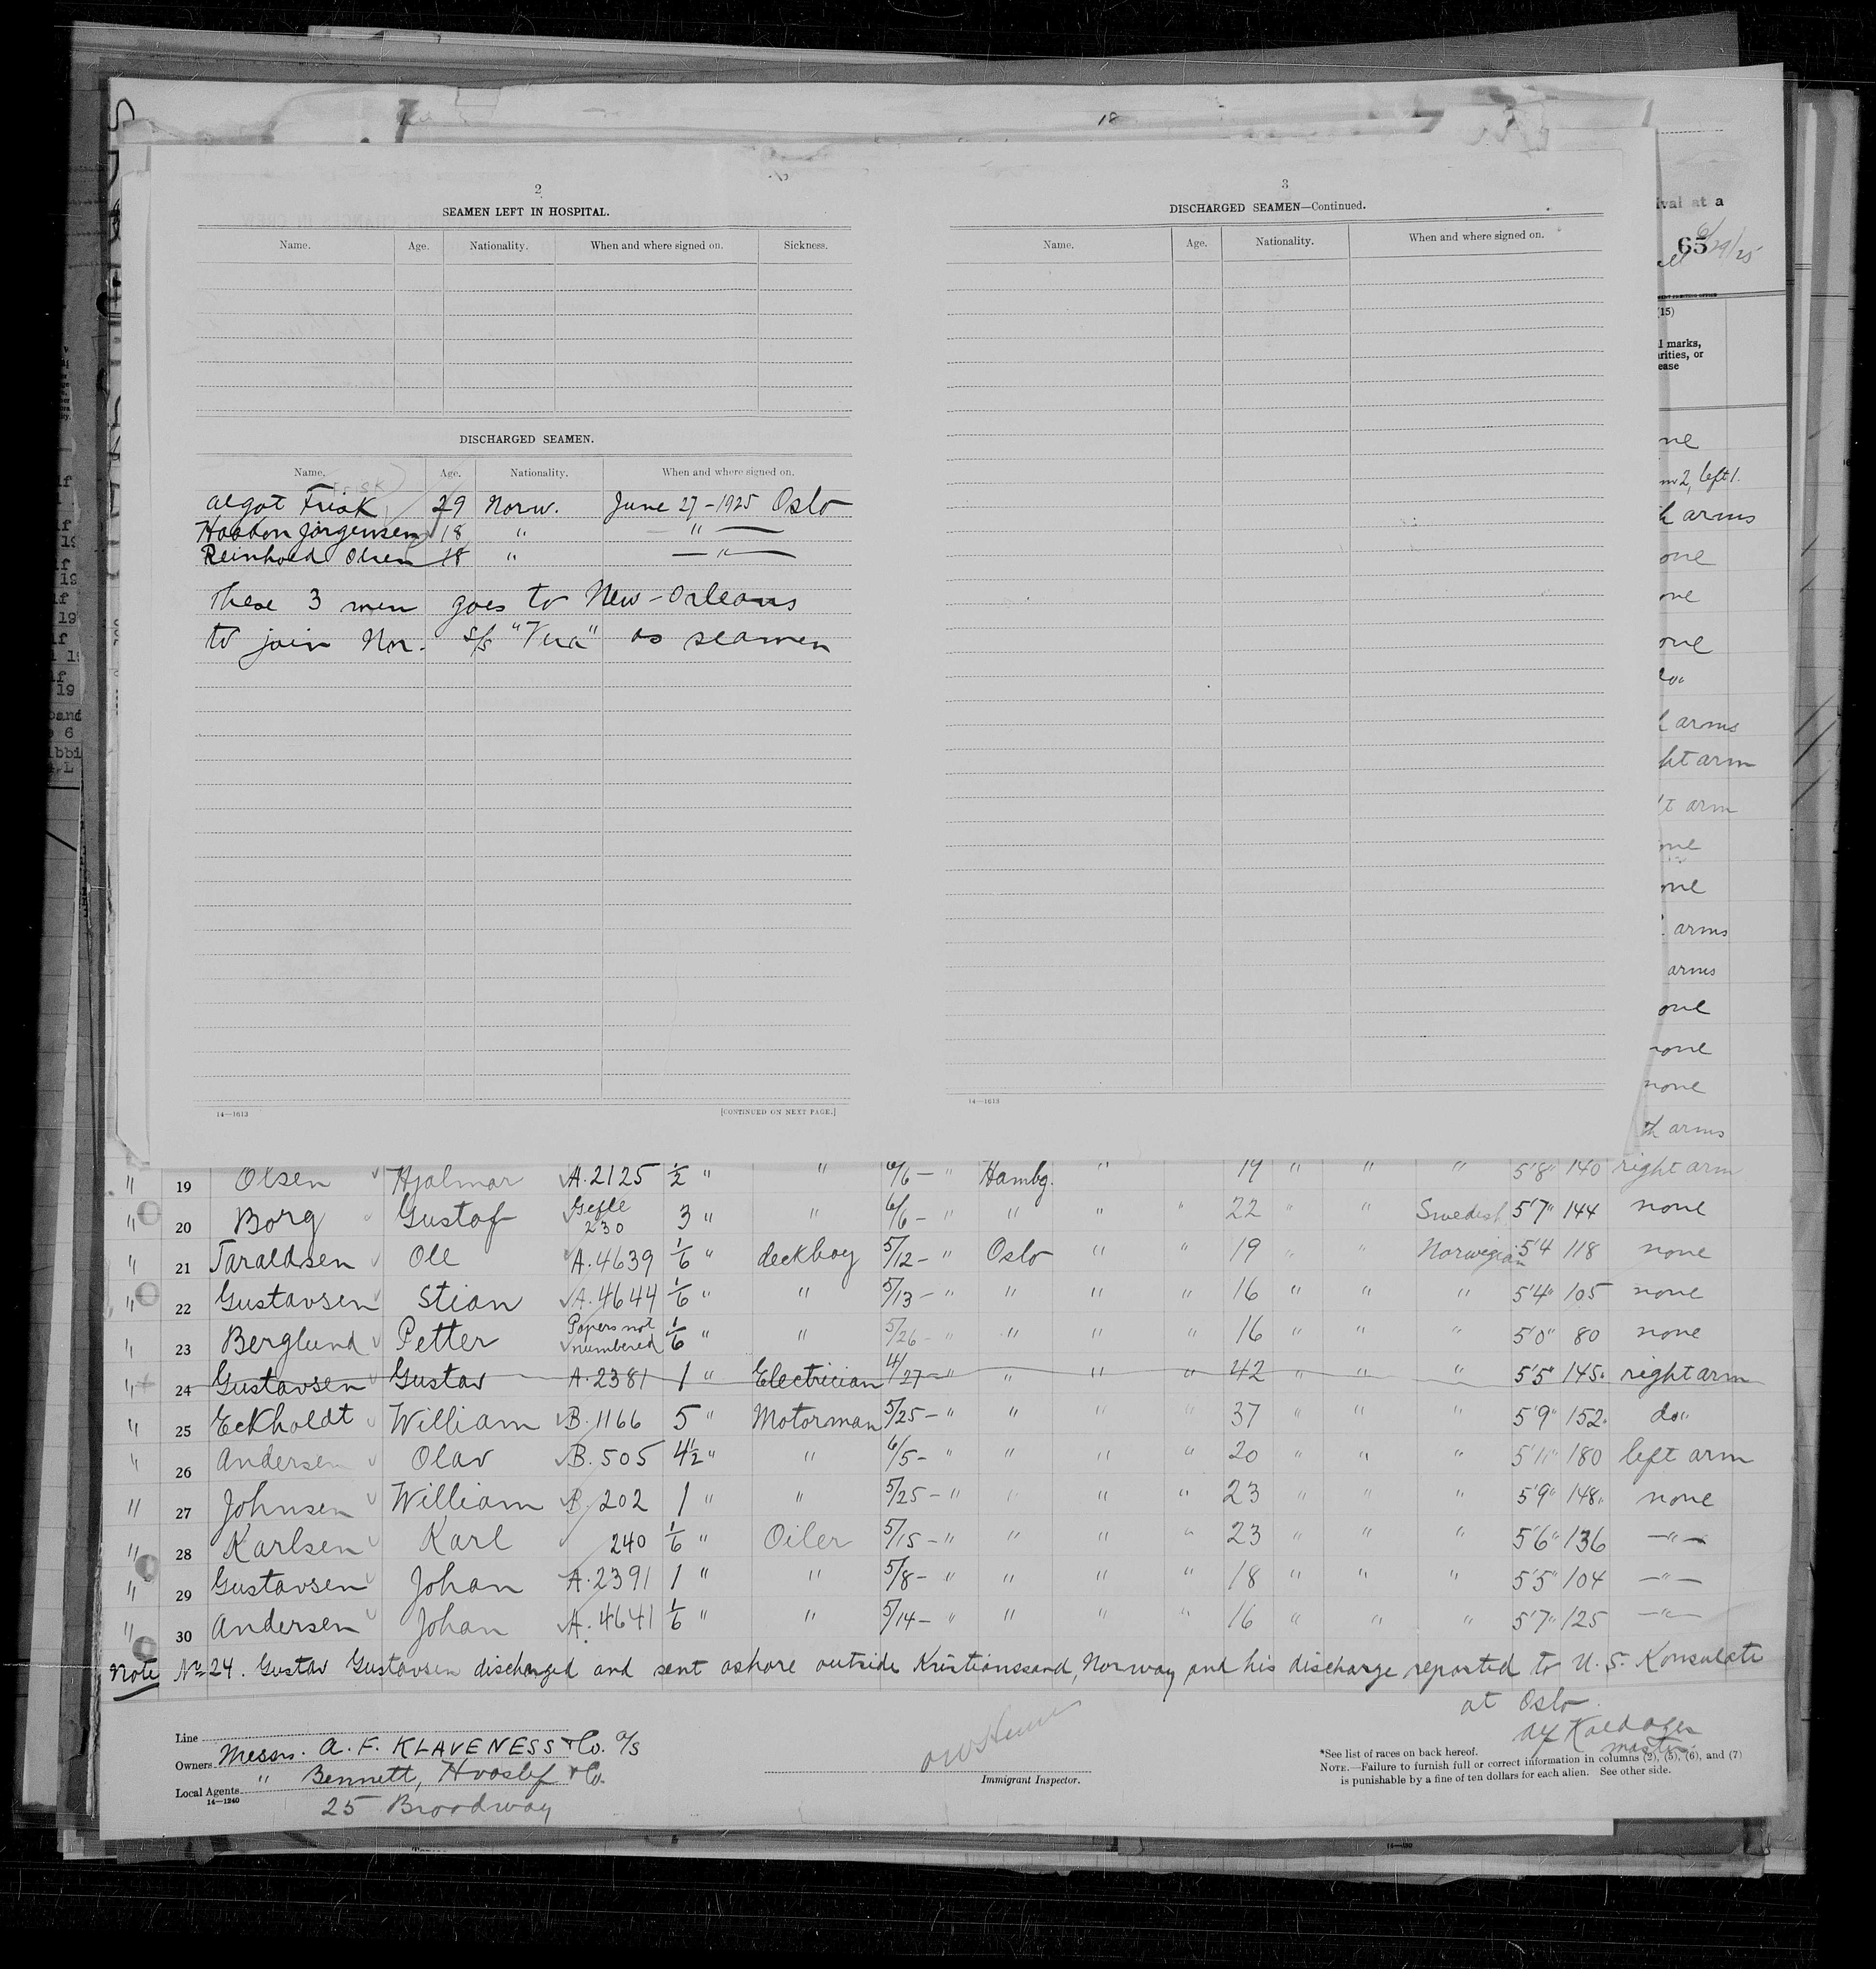 18
2
SEAMEN LEFT IN HOSPITAL.
Name. Age. Nationality. When and where signed on. Sickness.
DISCHARGED SEAMEN.
Name. Age. Nationality. When and where signed on.
Algot Frisk 29 Norw. June 27-1925 Oslo
Haakon Jörgensen 18 " — " —
Reinhold Olsen 18 " — " —
These 3 men goes to New-Orleans
to join Nor. S/S as seamen
14—1613 [CONTINUED ON NEXT PAGE.]
3
DISCHARGED SEAMEN—Continued.
Name. Age. Nationality. When and where signed on.
14—1613
ival at a
65
(15)
l marks,
arities, or
ease
ne
m 2, left 1.
h arms
one
one
one
do"
h arms
ght arm
t arm
one
one
arms
arms
one
none
none
th arms
" 19 Olsen Hjalmar A.2125 1/2 " " 6/6 — " Hambg. " 19 " " " 5'8" 140 right arm
" 20 Borg Gustaf Gefle 230 3 " " 6/6 — " " " " 22 " " Swedish 5'7" 144 none
" 21 Taraldsen Ole A.4639 1/6 " deckboy 5/12 — " Oslo " " 19 " " Norwegian 5'4 118 none
" 22 Gustavsen Stian A.4644 1/6 " " 5/13 — " " " " 16 " " " 5'4" 105 none
" 23 Berglund Petter Papers not numbered 1/6 " " 5/26 — " " " " 16 " " " 5'0" 80 none
" 24 Gustavsen Gustav A.2381 1 " Electrician 4/27 — " " " " 42 " " " 5'5" 145. right arm
" 25 Eckholdt William B.1166 5 " Motorman 5/25 — " " " " 37 " " " 5'9" 152. do"
" 26 Andersen Olav B.505 4 1/2 " " 6/5 — " " " " 20 " " " 5'11" 180 left arm
" 27 Johnsen William B.202 1 " " 5/25 — " " " " 23 " " " 5'9" 148. none
" 28 Karlsen Karl 240 1/6 " Oiler 5/15 — " " " " 23 " " " 5'6" 136 — " —
" 29 Gustavsen Johan A.2391 1 " " 5/8 — " " " " 18 " " " 5'5" 104 — " —
" 30 Andersen Johan A.4641 1/6 " " 5/14 — " " " " 16 " " " 5'7" 125 — " —
Note No 24. Gustav Gustavsen discharged and sent ashore outside Kristianssand, Norway and his discharge reported to U.S. Konsulate
at Oslo.
master
Line
Owners Messrs. A. F. KLAVENESS & Co. A/S
Local Agents " Bennett, Hvoslef & Co.
14—1240
25 Broadway
Immigrant Inspector.
*See list of races on back hereof.
NOTE.—Failure to furnish full or correct information in columns (2), (5), (6), and (7)
is punishable by a fine of ten dollars for each alien. See other side.